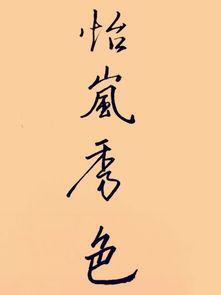 怡嵐秀色